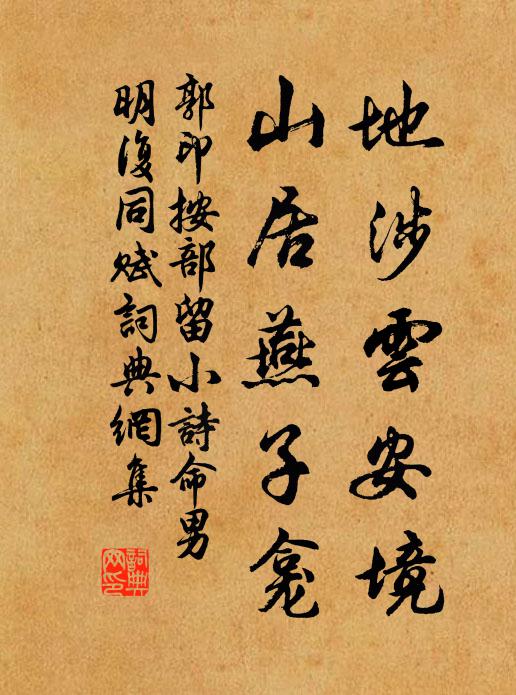 地涉雲安境
山居燕子龕
郭印按部留小詩命男
明復同賦詞典網集
詞典網印